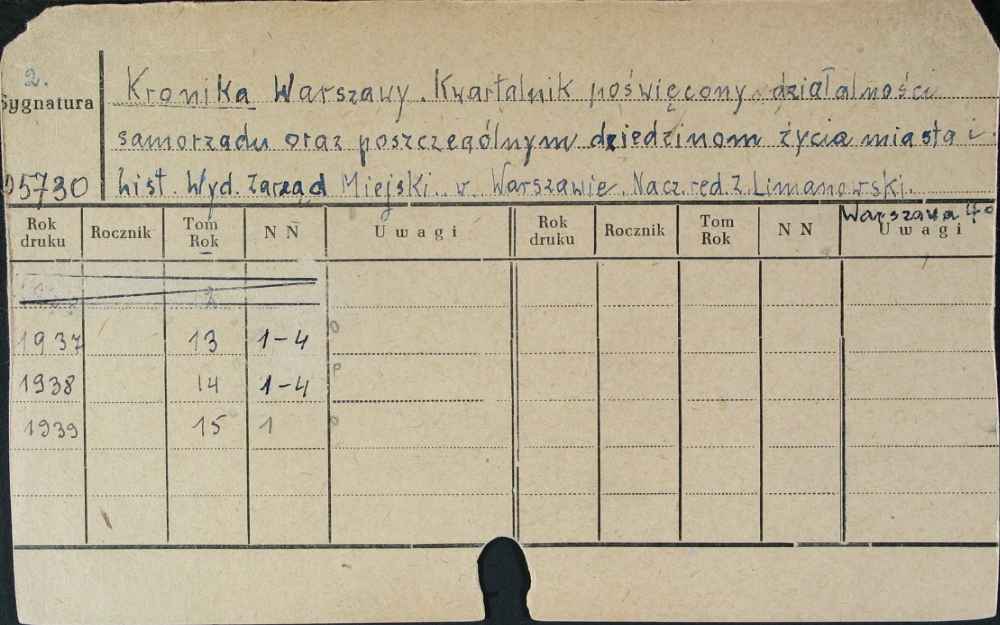 2.
Sygnatura
95730
Kronika Warszawy. Kwartalnik poświęcony działalności
samorządu oraz poszczególnym dziedzinom życia miasta i
hist. Wyd. Zarząd Miejski w Warszawie. Nacz. red. Z. Limanowski.
Warszawa 40
Rok druku Rocznik Tom Rok N N Uwagi Rok druku Rocznik Tom Rok N N Uwagi
1937 13 1-4
1938 14 1-4 p
1939 15 1